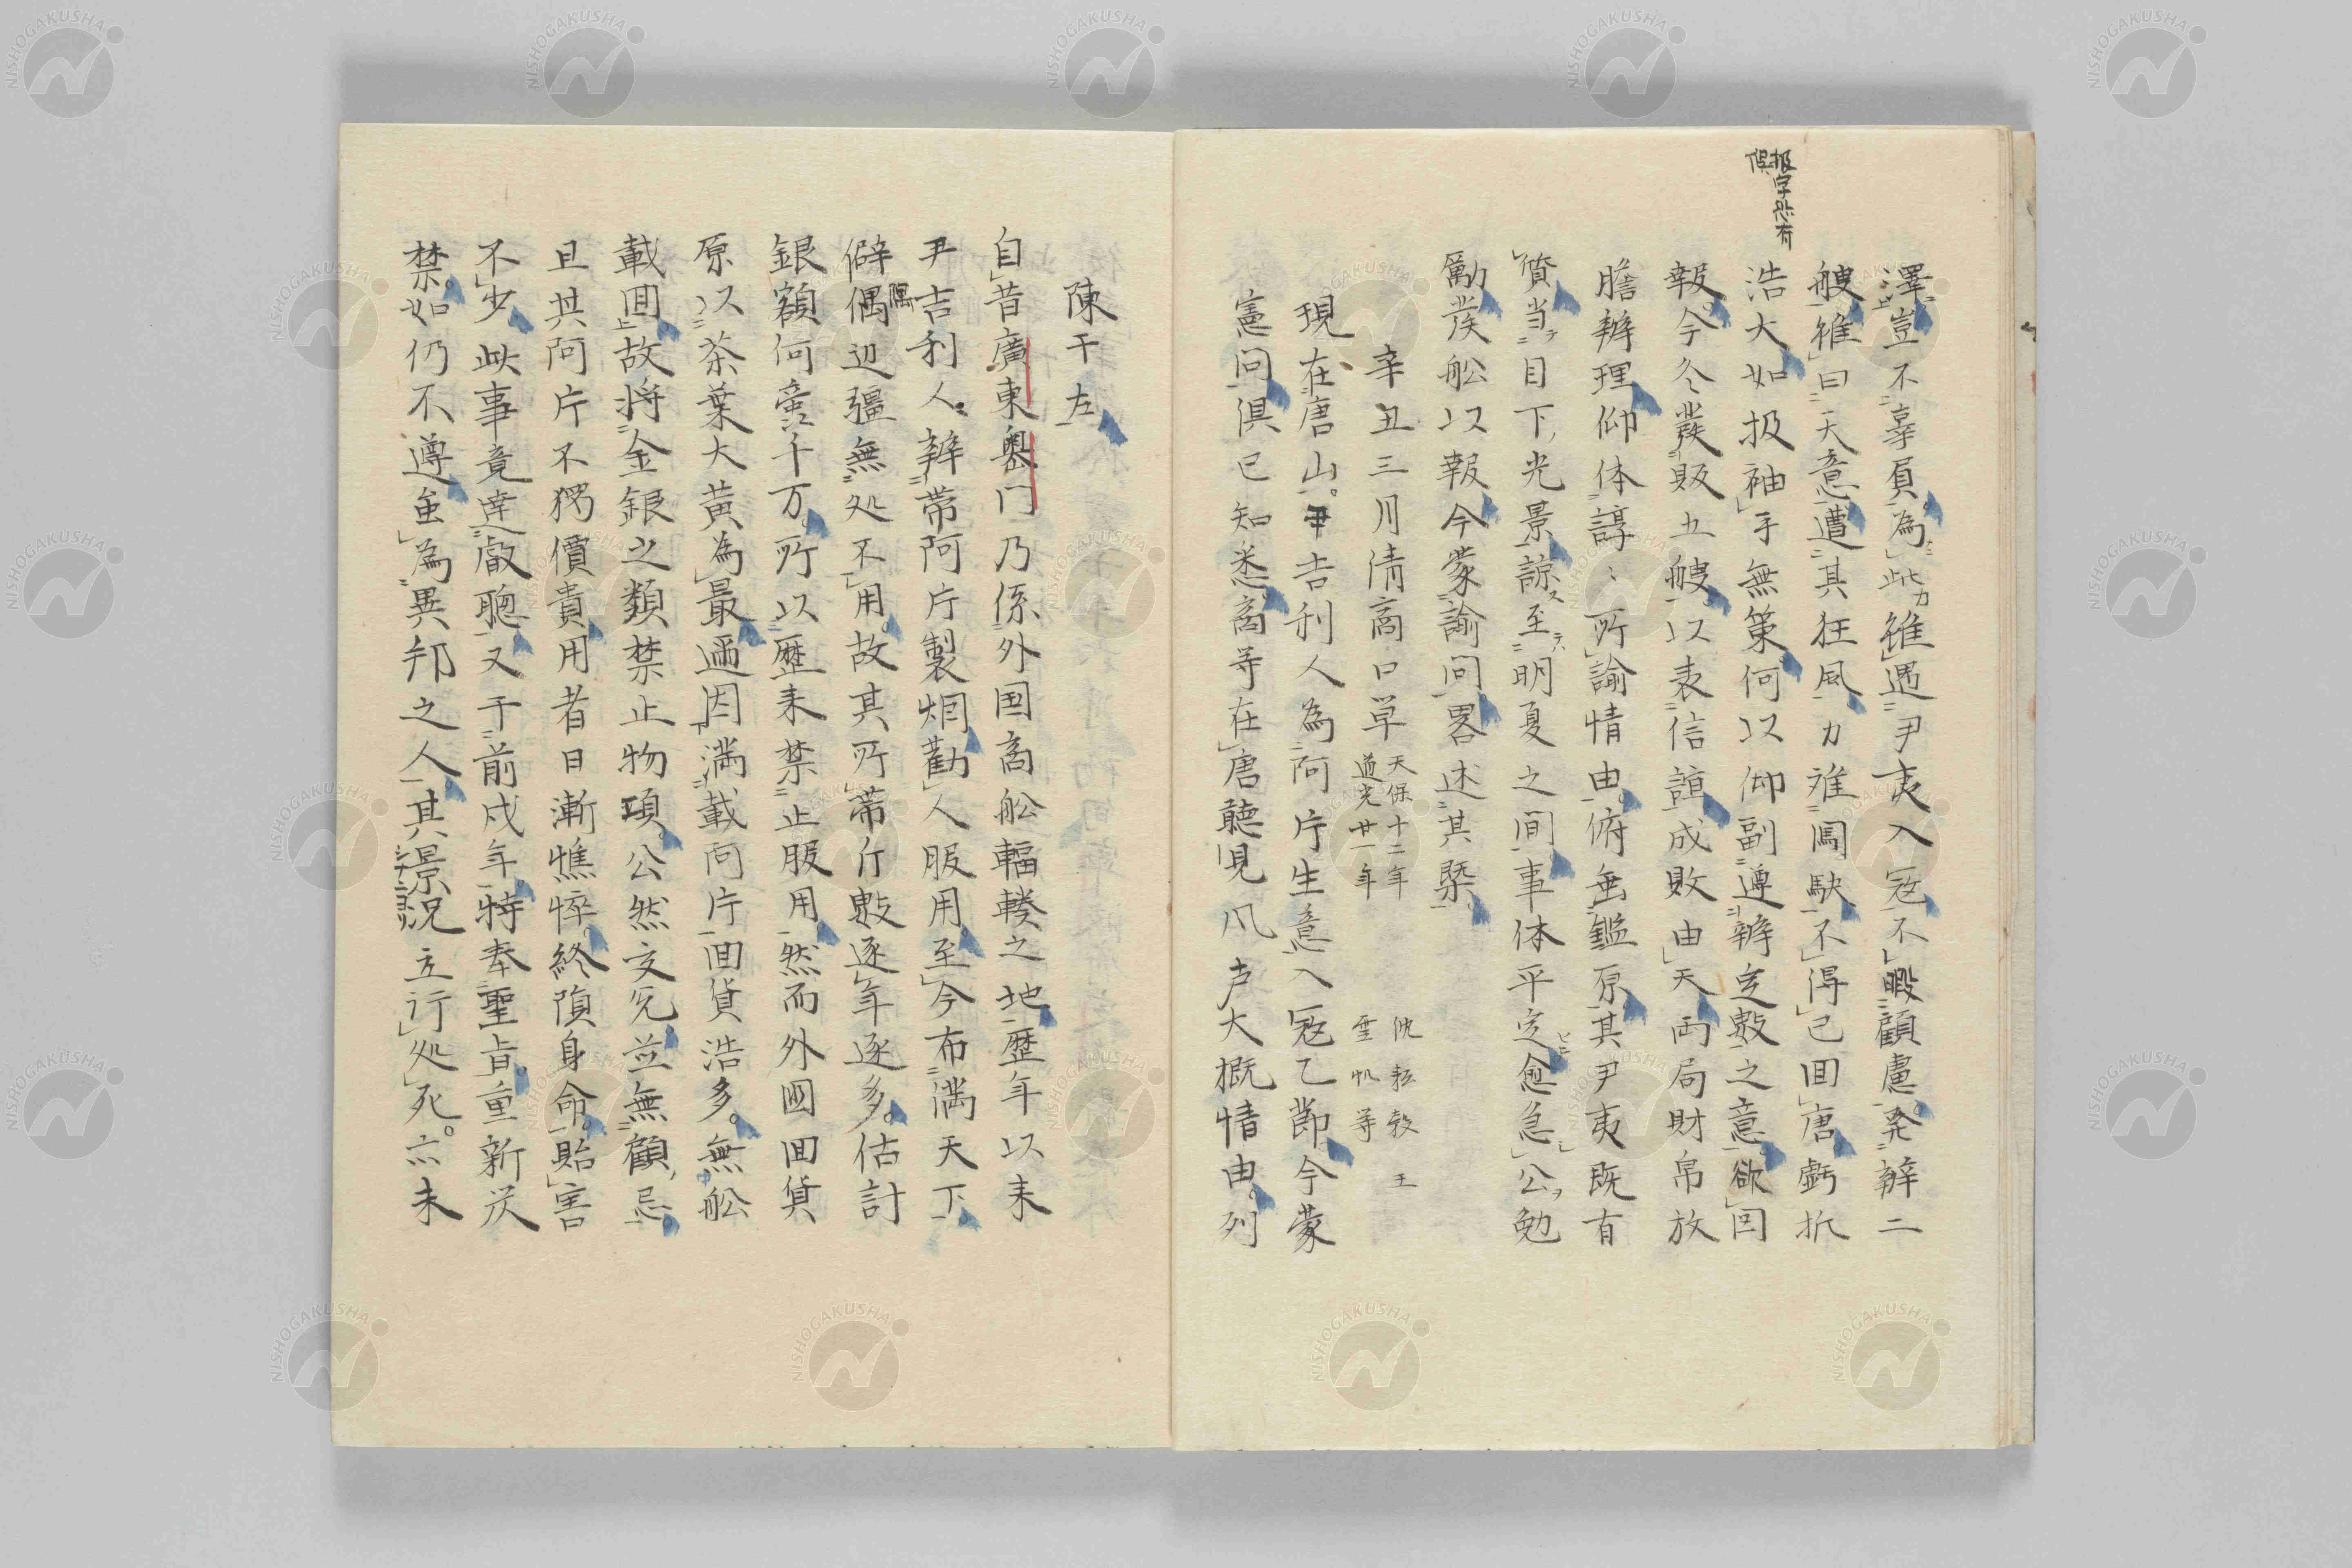 扱字恐有
倶
澤豈不辜屓為此雖遇尹夷入冦不暇顧慮発辦二
艘雖曰天意遭其狂風力难闖駃不得已囬唐虧折
浩大如扱袖手無策何以仰副遵辦定数之意欲囙
報今冬發販五艘以表信誼成敗由天両局財帛放
膽辦理仰体諄〻所諭情由俯垂鑑原其尹夷既有
質当目下光景諒至明夏之间事体平定愈急公勉
勵發舩以報今蒙諭问畧述其槩
辛丑三月清商口単
天保十二年
道光廿一年
沈耘穀 王
雲帆等
現在唐山尹吉利人為阿片生意入冦乙節今蒙
憲问俱已知悉商等在唐聴見風声大概情由列
陳于左
自昔廣東奥门乃係外国商舩輻輳之地歴年以来
尹吉利人辦帯阿片製烟勸人服用至今布満天下
僻偶辺疆無処不用故其所帯斤数逐年逐多估計
隅
銀額何啻千万所以歴来禁止服用然而外國囬貨
原以茶葉大黄為最逥因満載阿片囬貨浩多無舩
載囬故將金銀之類禁止物項公然交兌並無顧忌
且其阿片不独價貴用者日漸憔悴終隕身命貽害
不少此事竟達叡聰又于前戌年特奉聖旨重新厳
禁如仍不遵虽為異邦之人其景況立行処死亦未